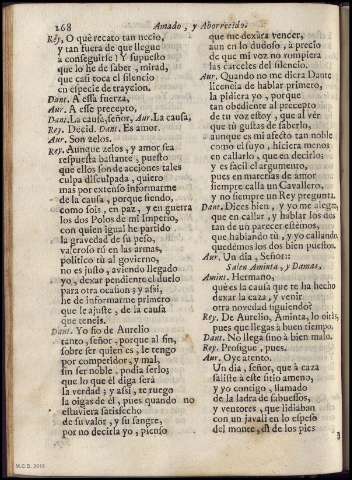 268
Amado, y Aborrecido.
Rey. O què recato tan necio,
y tan fuera de que llegue
à conseguirse! Y supuesto
que lo he de saber, mirad,
que casi toca el silencio
en especie de traycion.
Dant. A essa fuerza,
Aur. A esse precepto,
Dant. La causa, señor, Aur. La causa,
Rey. Decid. Dant. Es amor.
Aur. Son zelos.
Rey. Aunque zelos, y amor sea
respuesta bastante, puesto
que ellos son de acciones tales
culpa disculpada, quiero
mas por extenso informarme
de la causa, porque siendo,
como sois, en paz, y en guerra
los dos Polos de mi Imperio,
con quien igual he partido
la gravedad de su peso,
valeroso tù en las armas,
politico tù al govierno,
no es justo, aviendo llegado
yo, dexar pendiente el duelo
para otra ocasion; y assi,
he de informarme primero
que le ajuste, de la causa
que teneis.
Dant. Yo fio de Aurelio
tanto, señor, porque al fin,
sobre ser quien es, le tengo
por competidor, y mal,
sin ser noble, podia serlo;
que lo que èl diga serà
la verdad; y assi, te ruego
la oigas de èl, pues quando no
estuviera satisfecho
de su valor, y su sangre,
por no decirla yo, pienso
que me dexàra vencer,
aun en lo dudoso, à precio
de que mi voz no rompiera
las carceles del silencio.
Aur. Quando no me diera Dante
licencia de hablar primero,
la pidiera yo, porque
tan obediente al precepto
de tu voz estoy, que al vèr
que tù gustas de saberlo,
aunque es mi afecto tan noble
como el suyo, hiciera menos
en callarlo, que en decirlo:
y es facil el argumento,
pues en materias de amor
siempre calla un Cavallero,
y no siempre un Rey pregunta.
Dant. Dices bien, y yo me alegro,
que en callar, y hablar los dos
tan de un parecer estèmos,
que hablando tù, y yo callando,
quedèmos los dos bien puestos.
Aur. Un dia, Señor:
Salen Aminta, y Damas.
Amint. Hermano,
què es la causa que te ha hecho
dexar la caza, y venir
otra novedad siguiendo?
Rey. De Aurelio, Aminta, lo oiràs,
pues que llegas à buen tiempo.
Dant. No llega sino à bien malo.
Rey. Prosigue, pues.
Aur. Oye atento.
Un dia, señor, que à caza
saliste à este sitio ameno,
y yo contigo, llamado
de la ladra de sabuessos,
y ventores, que lidiaban
con un javalì en lo espeso
del monte, al de los pies
M.C.D. 2018